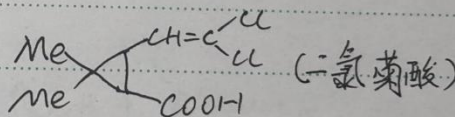 Me
Me
CH=C
Cl
Cl
COOH
(二氯菊酸)